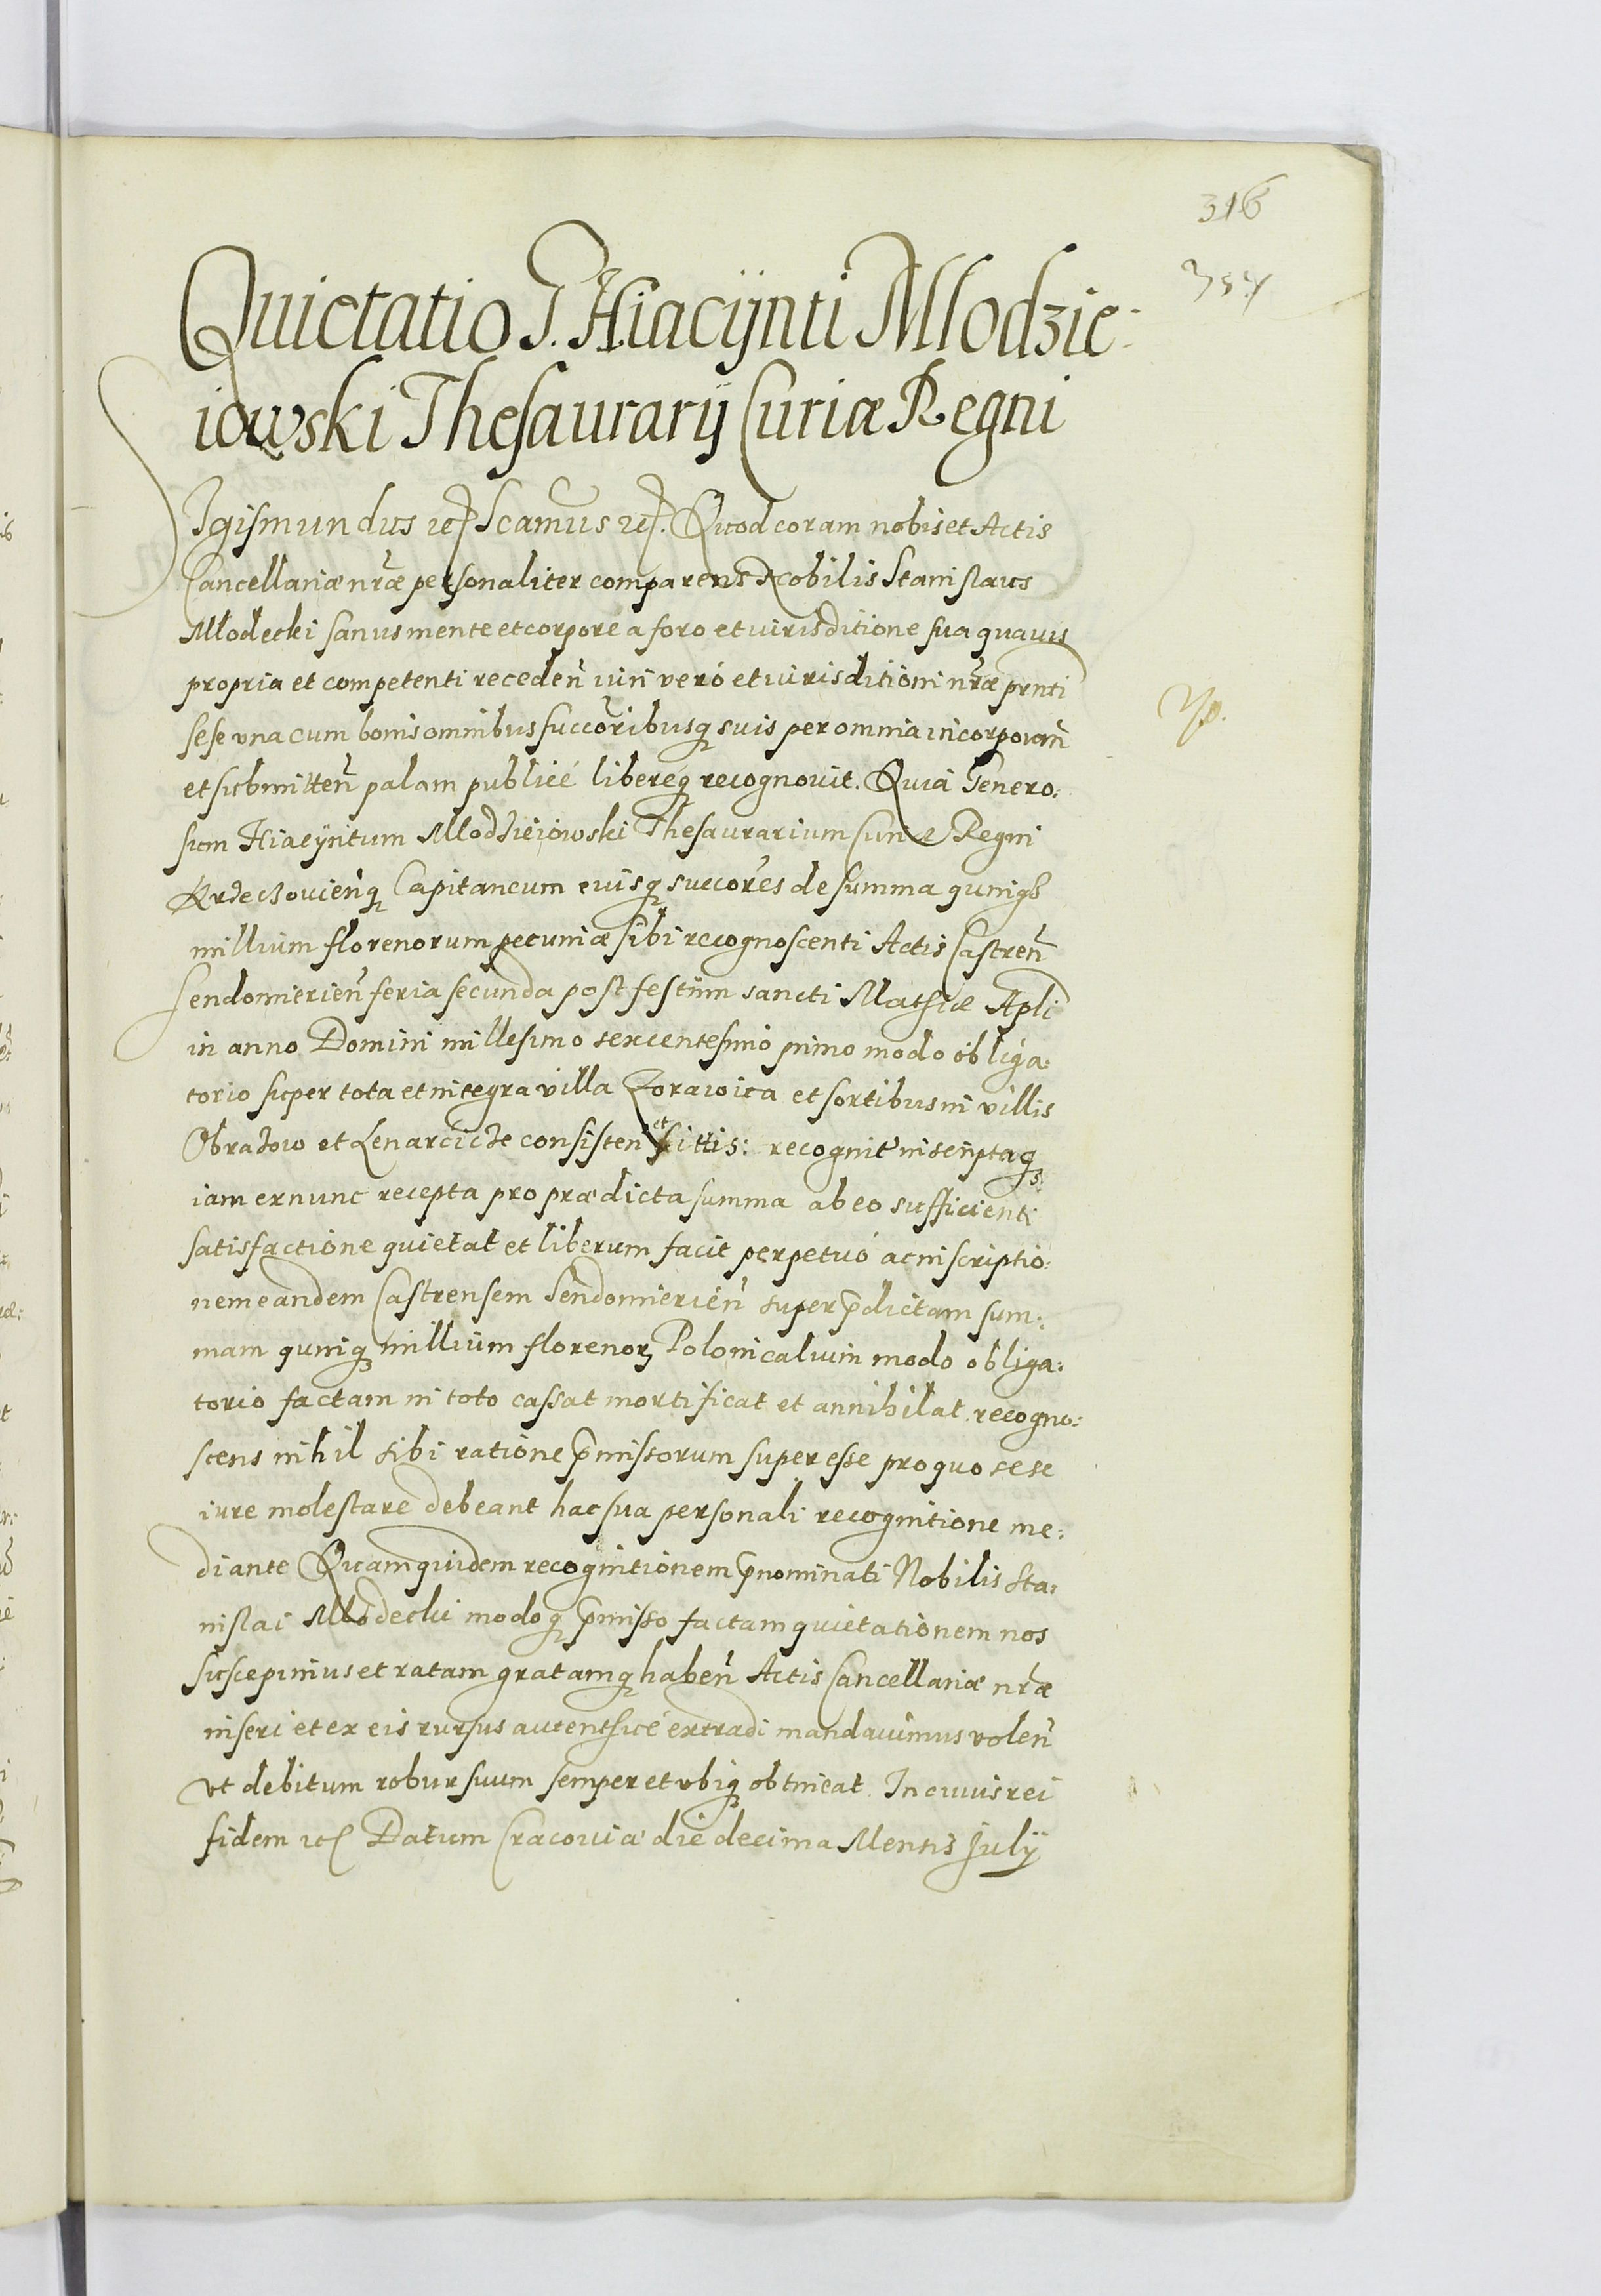 316
354
Quietatio G. Hiacÿnti Mlodzie-
iowski Thesaurarÿ Curiæ Regni
Sigismundus etc. Scamus etc. Quod coram nobis et Actis
Cancellariæ nr̃æ personaliter comparens Nobilis Stanislaus
Młodecki sanus mente et corpore a foro et iurisditione sua quavis
propria et competenti receden̄ iuri verò et iurisditioni nr̃æ prnti
sese vna cum bonis omnibus succōribusq suis per omnia incorporan̄
et submitten̄ palam publicè libereq recognovit. Quia Genero:
sum Hiacÿntum Mlodzieiowski Thesaurarium Curiæ Regni
Krzeczovien̄q Capitaneum euisq succōres de summa quinq
millium florenorum pecuniæ sibi recognoscenti Actis Castren̄
Sendomierien̄ feria secunda post festum sancti Mathiæ Apli
in anno Domini millesimo sexcentesimo primo modo obliga:
torio super tota et integra villa Zorawica et sortibus in villis
Obrazow et Lenarcice consisten̄ et sittis: recognit inscriptaq
iam ex nunc recepta pro prædicta summa ab eo sufficienti
satisfactione quietat et liberum facit perpetuò ac inscriptio:
nem eandem Castrensem Sendomierien̄ super p̄dictam sum:
mam quinq millium florenor Polonicalium modo obliga:
torio factam in toto cassat mortificat et annihilat. recogno:
scens nihil sibi ratione p̄missorum superesse pro quo sese
iure molestare debeant hac sua personali recognitione me:
diante Quam quidem recognitionem p̄nominati Nobilis Sta:
nislai Młodecki modoq p̄misso factam quietationem nos
suscepimus et ratam gratamq haben̄ Actis Cancellariæ nr̃æ
inseri et ex eis rursus autenthicè extradi mandavimus volen̄
vt debitum robur suum semper et vbiq obtineat. In cuius rei
fidem etc Datum Cracoviæ die decima Mensis Julÿ